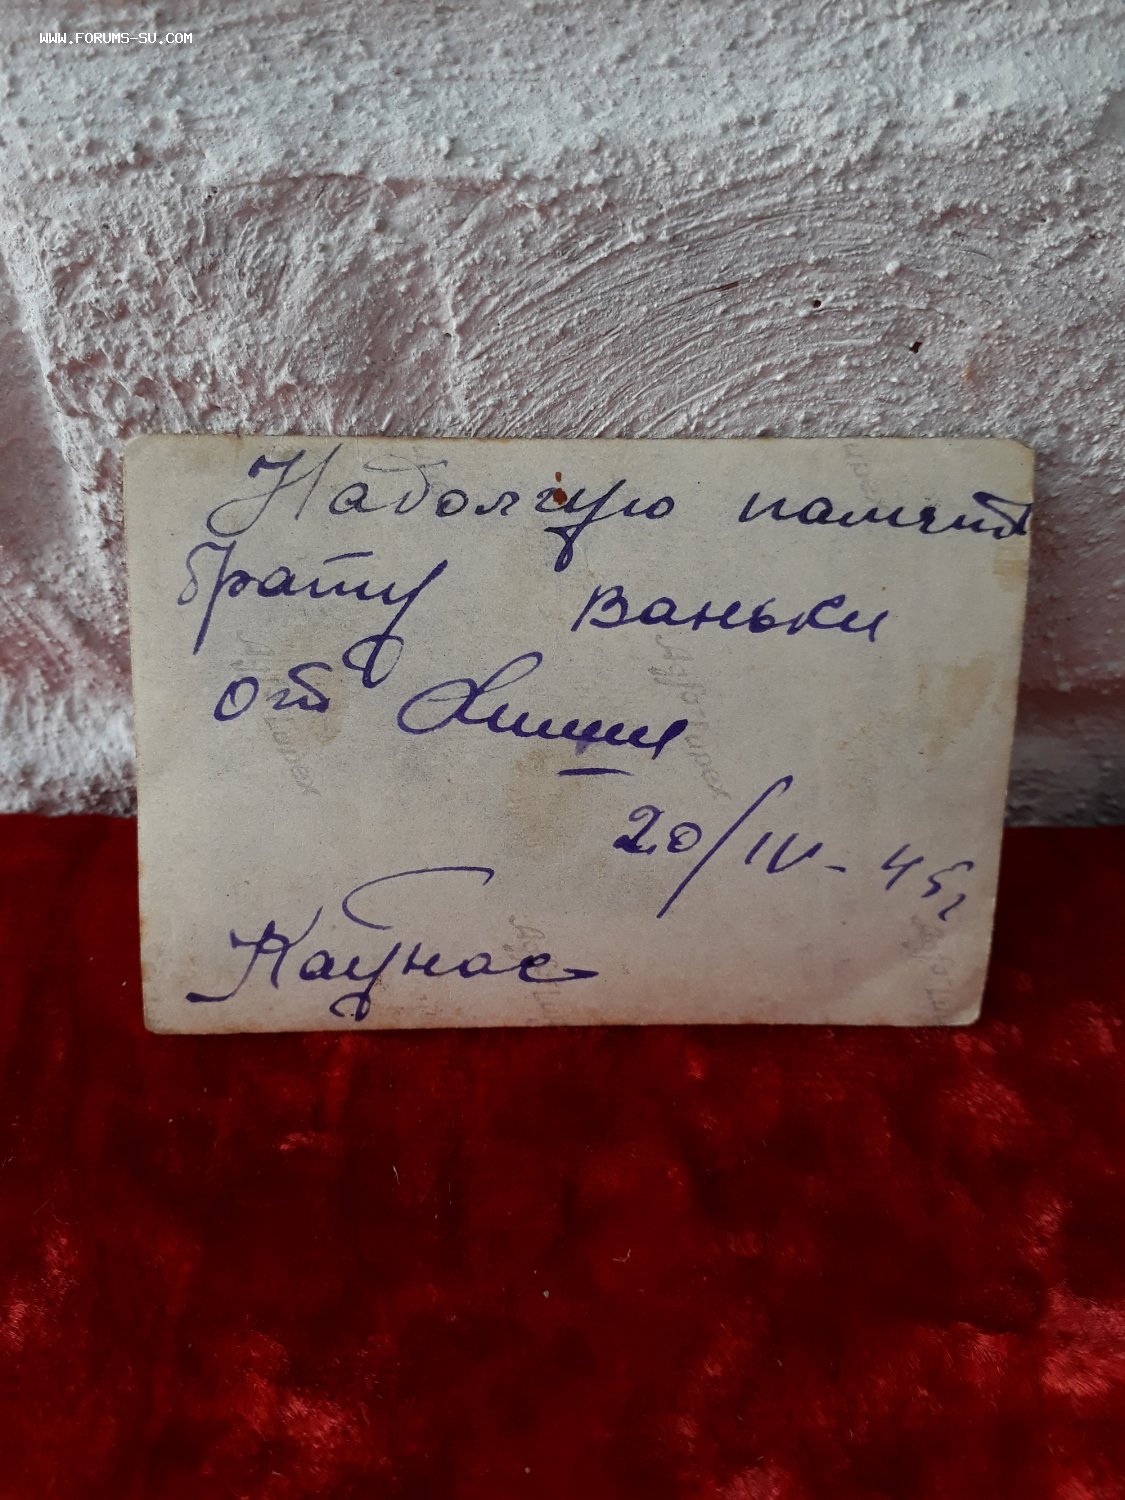 WWW.FORUMS-SU.COM
Надолгую память
брату Ваньки
от
20/IV-45г
Каунас